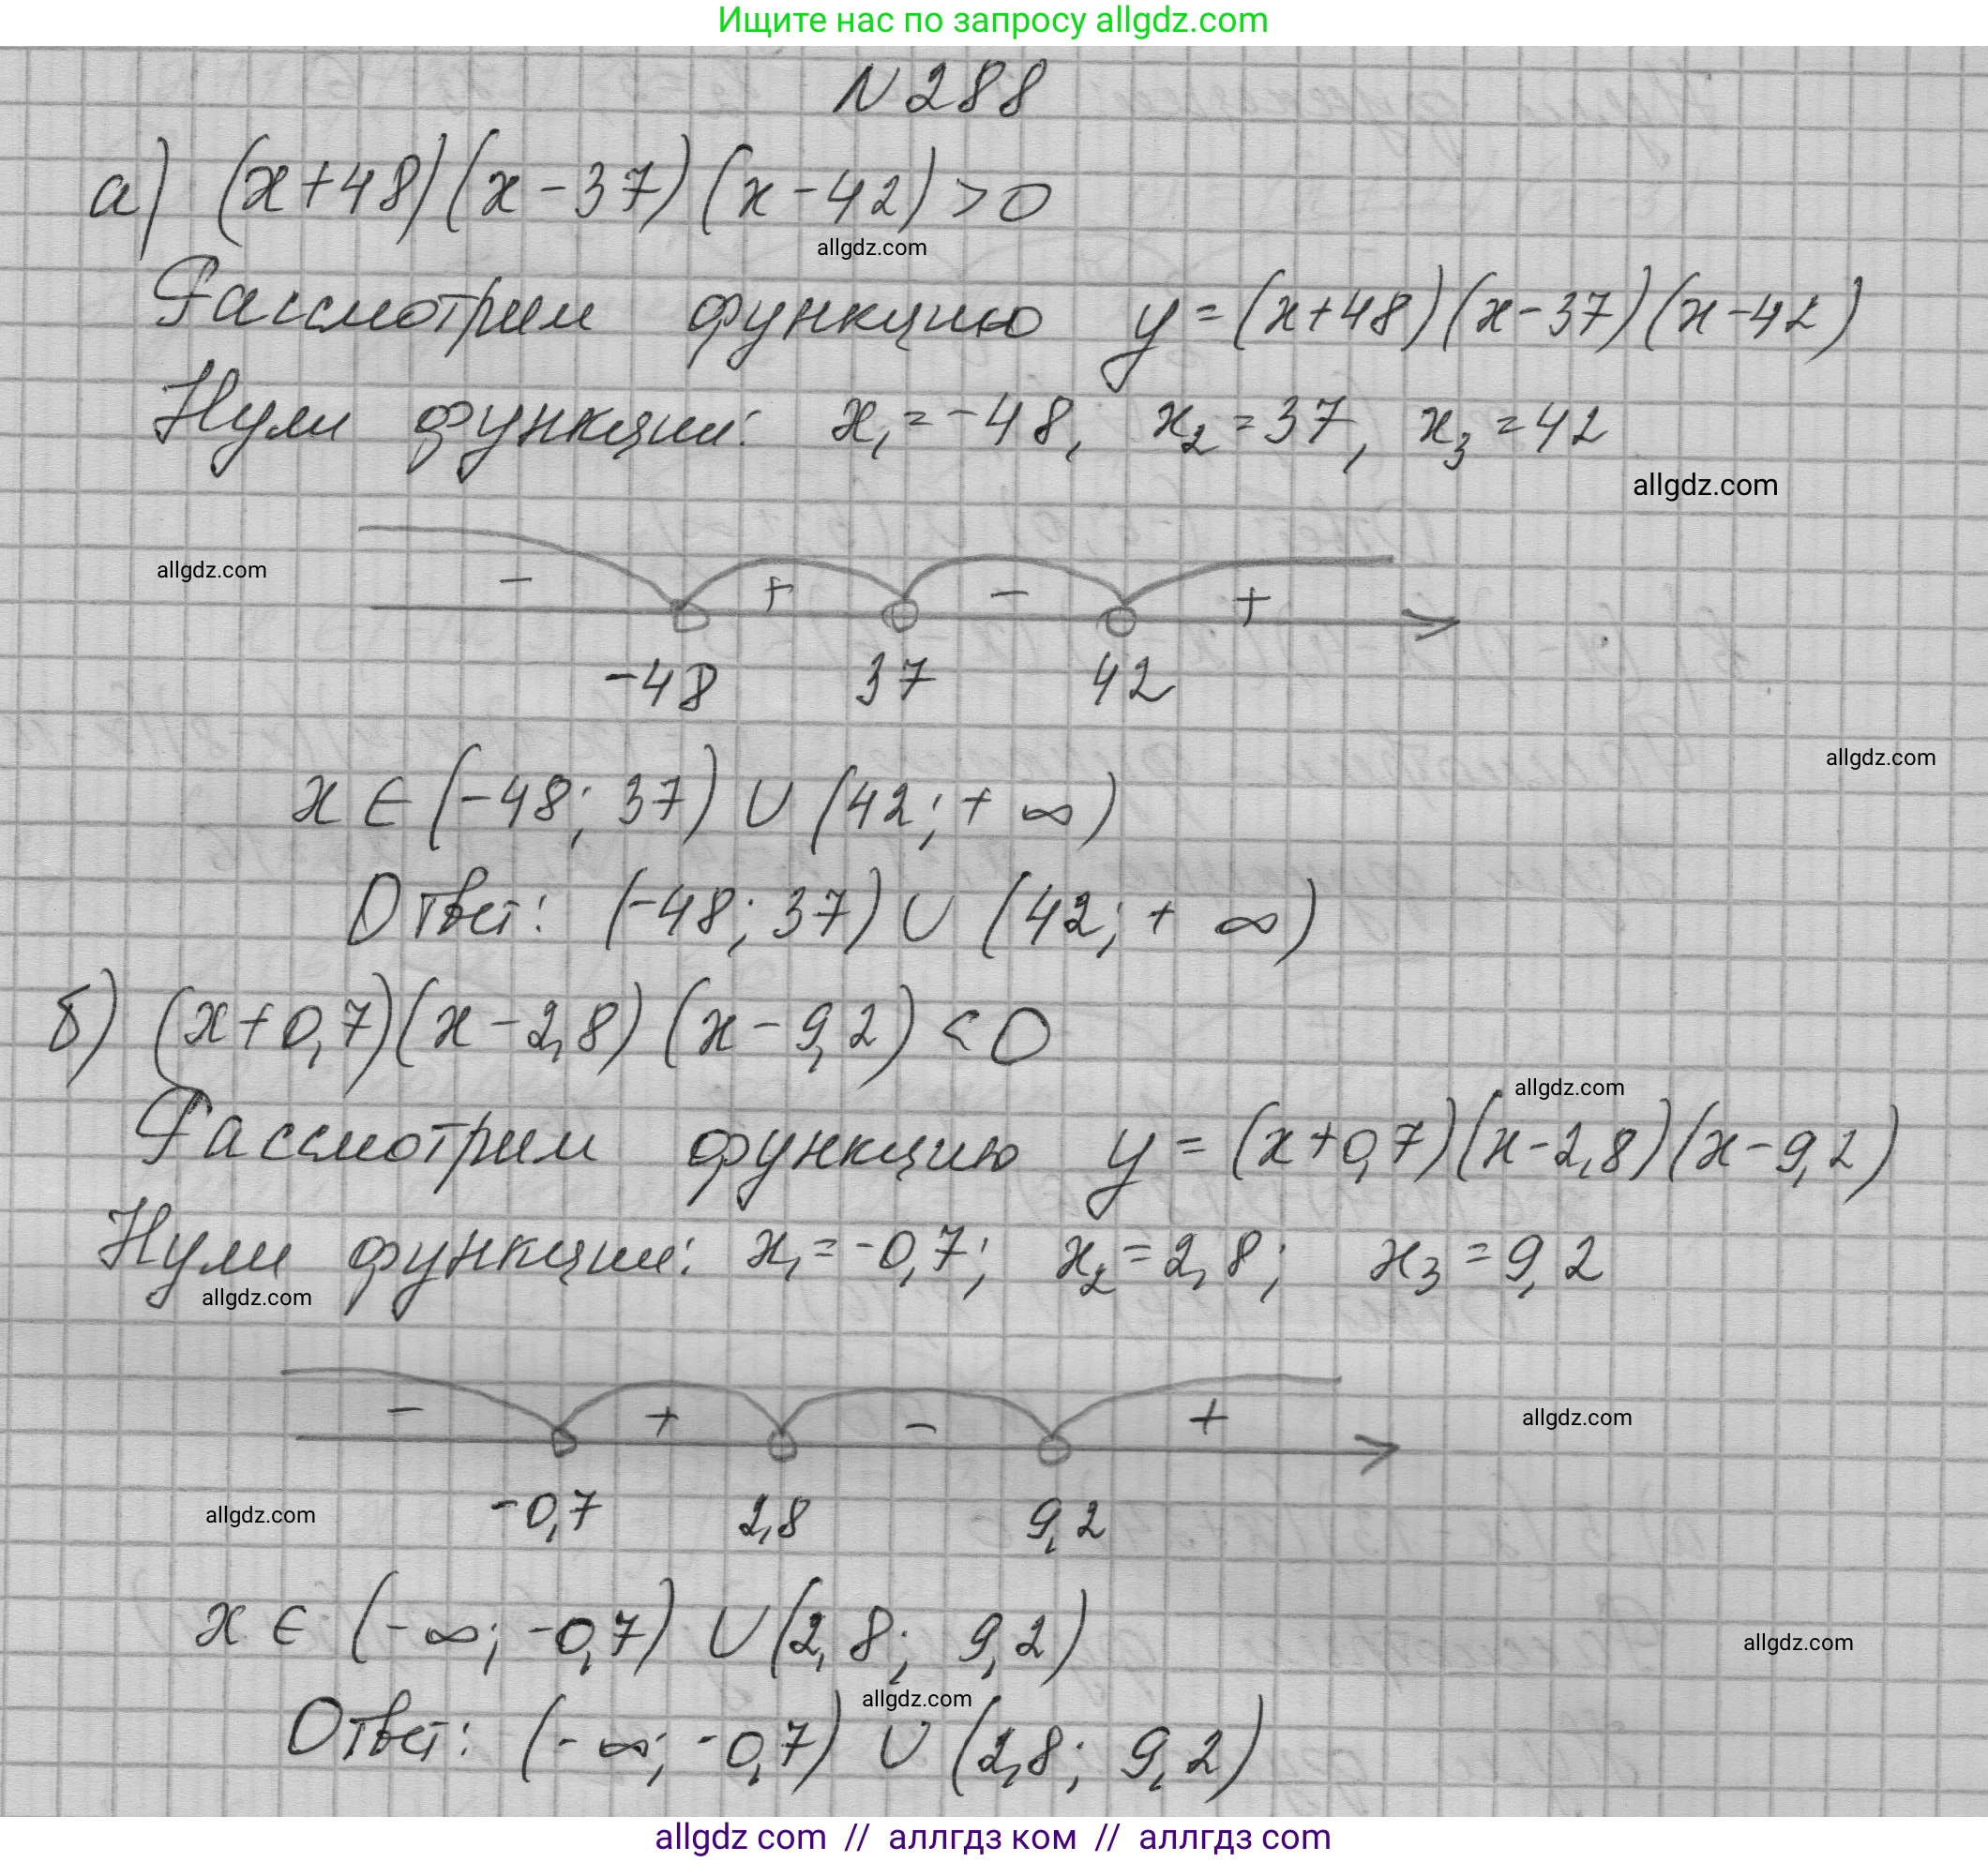 Ищите нас по запросу allgdz.com
N288
а) (x+48)(x-37)(x-42)>0
allgdz.com
Рассмотрим функцию y=(x+48)(x-37)(x-42)
Нули функции: x₁=-48, x₂=37, x₃=42
allgdz.com
allgdz.com
- + - +
-48 37 42
allgdz.com
x ∈ (-48; 37) ∪ (42; +∞)
Ответ: (-48; 37) ∪ (42; +∞)
б) (x+0,7)(x-2,8)(x-9,2)<0
allgdz.com
Рассмотрим функцию y=(x+0,7)(x-2,8)(x-9,2)
Нули функции: x₁=-0,7; x₂=2,8; x₃=9,2
allgdz.com
- + - +
allgdz.com
allgdz.com
-0,7 2,8 9,2
x ∈ (-∞; -0,7) ∪ (2,8; 9,2)
allgdz.com
allgdz.com
Ответ: (-∞; -0,7) ∪ (2,8; 9,2)
allgdz com // аллгдз ком // аллгдз com